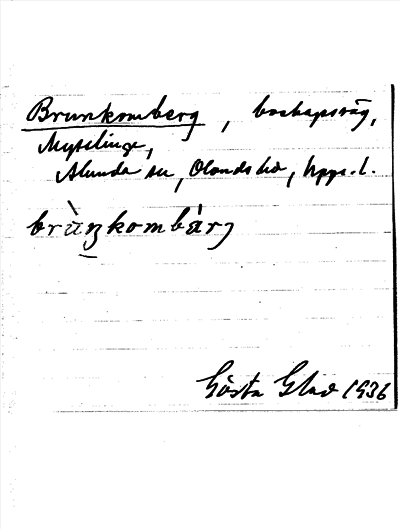 Brunkomberg, boskapsväg,
Mysslinge,
Alunda sn, Olands hd, Upps. l.
brùŋkombárj
Gösta Glad 1936